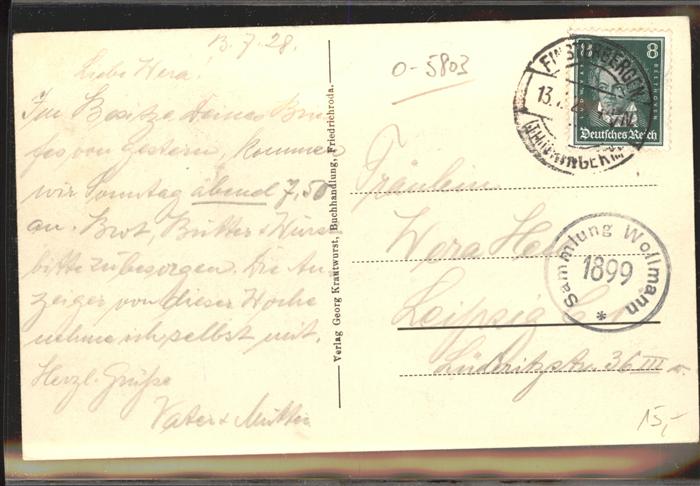 13.7.28.
Liebe Wera!
Im Besitze Deines Brie-
fes von Gestern, kommen
wir Sonntag abend 7,50
an. Brot, Butter & Wurst
bitte zu besorgen. Die An-
zeiger von dieser Woche
nehme ich selbst mit.
Herzl. Grüße
Vater & Mutter
Verlag Georg Krautwurst, Buchhandlung, Friedrichroda.
0-5803
8
BEETHOVEN
Deutsches Reich
FINSTERBERGEN
13.7.
(THÜRINGERW
Fräulein
Wera
Leipzig
Lüderitzstr. 36 III
Sammlung Wollmann
1899
*
15,-